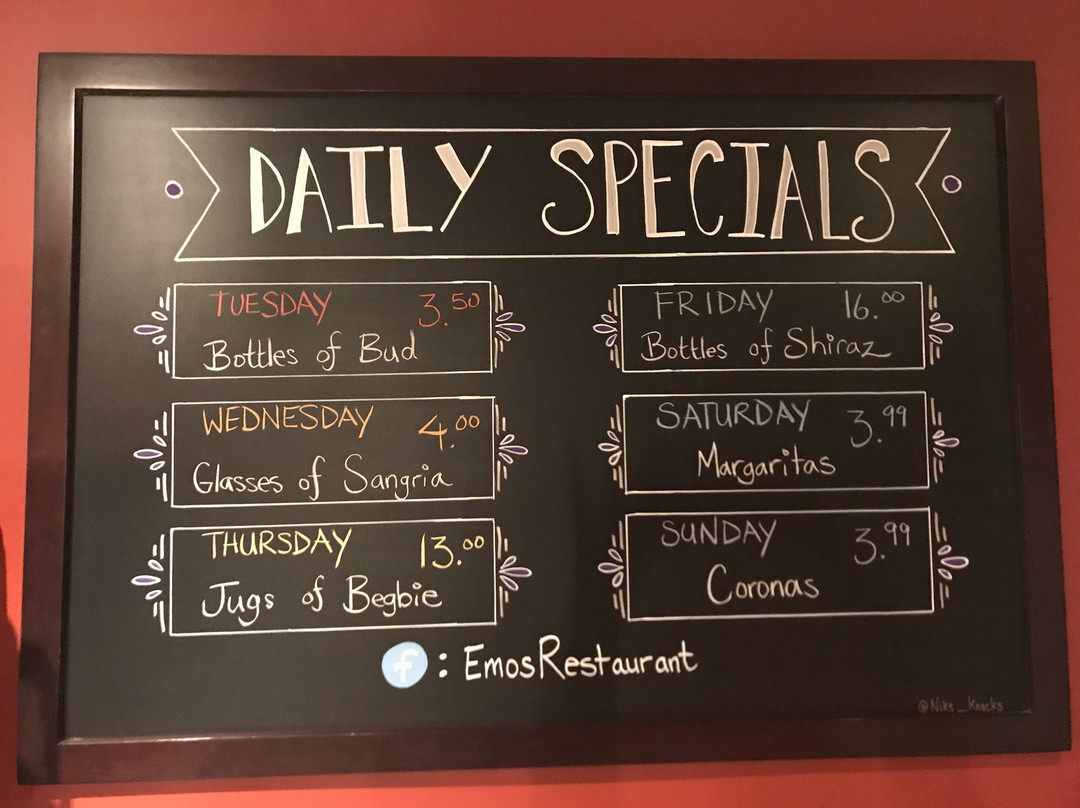 DAILY SPECIALS
TUESDAY 3.50
Bottles of Bud
WEDNESDAY 4.00
Glasses of Sangria
THURSDAY 13.00
Jugs of Begbie
FRIDAY 16.00
Bottles of Shiraz
SATURDAY 3.99
Margaritas
SUNDAY 3.99
Coronas
f : EmosRestaurant
@Niks_Knacks